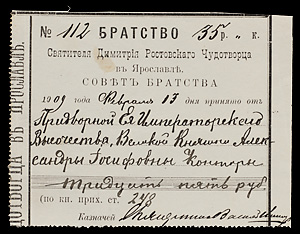 № 112 БРАТСТВО 35 р. „ к.
Святителя Димитрія Ростовскаго Чудотворца
въ Ярославлѣ.
СОВѢТЪ БРАТСТВА
1909 года Февраля 13 дня принято отъ
Придворной Ея Императорскаго
Высочества, Великой Княгини Алек-
сандры Іосифовны Конторы
тридцать пять руб.
(по кн. прих. ст. 248
Казначей
ДОТВОРЦА ВЪ ЯРОСЛАВЛѢ.